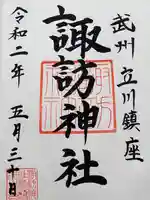 武州 立川鎮座
諏訪神社
令和二年 五月三十日